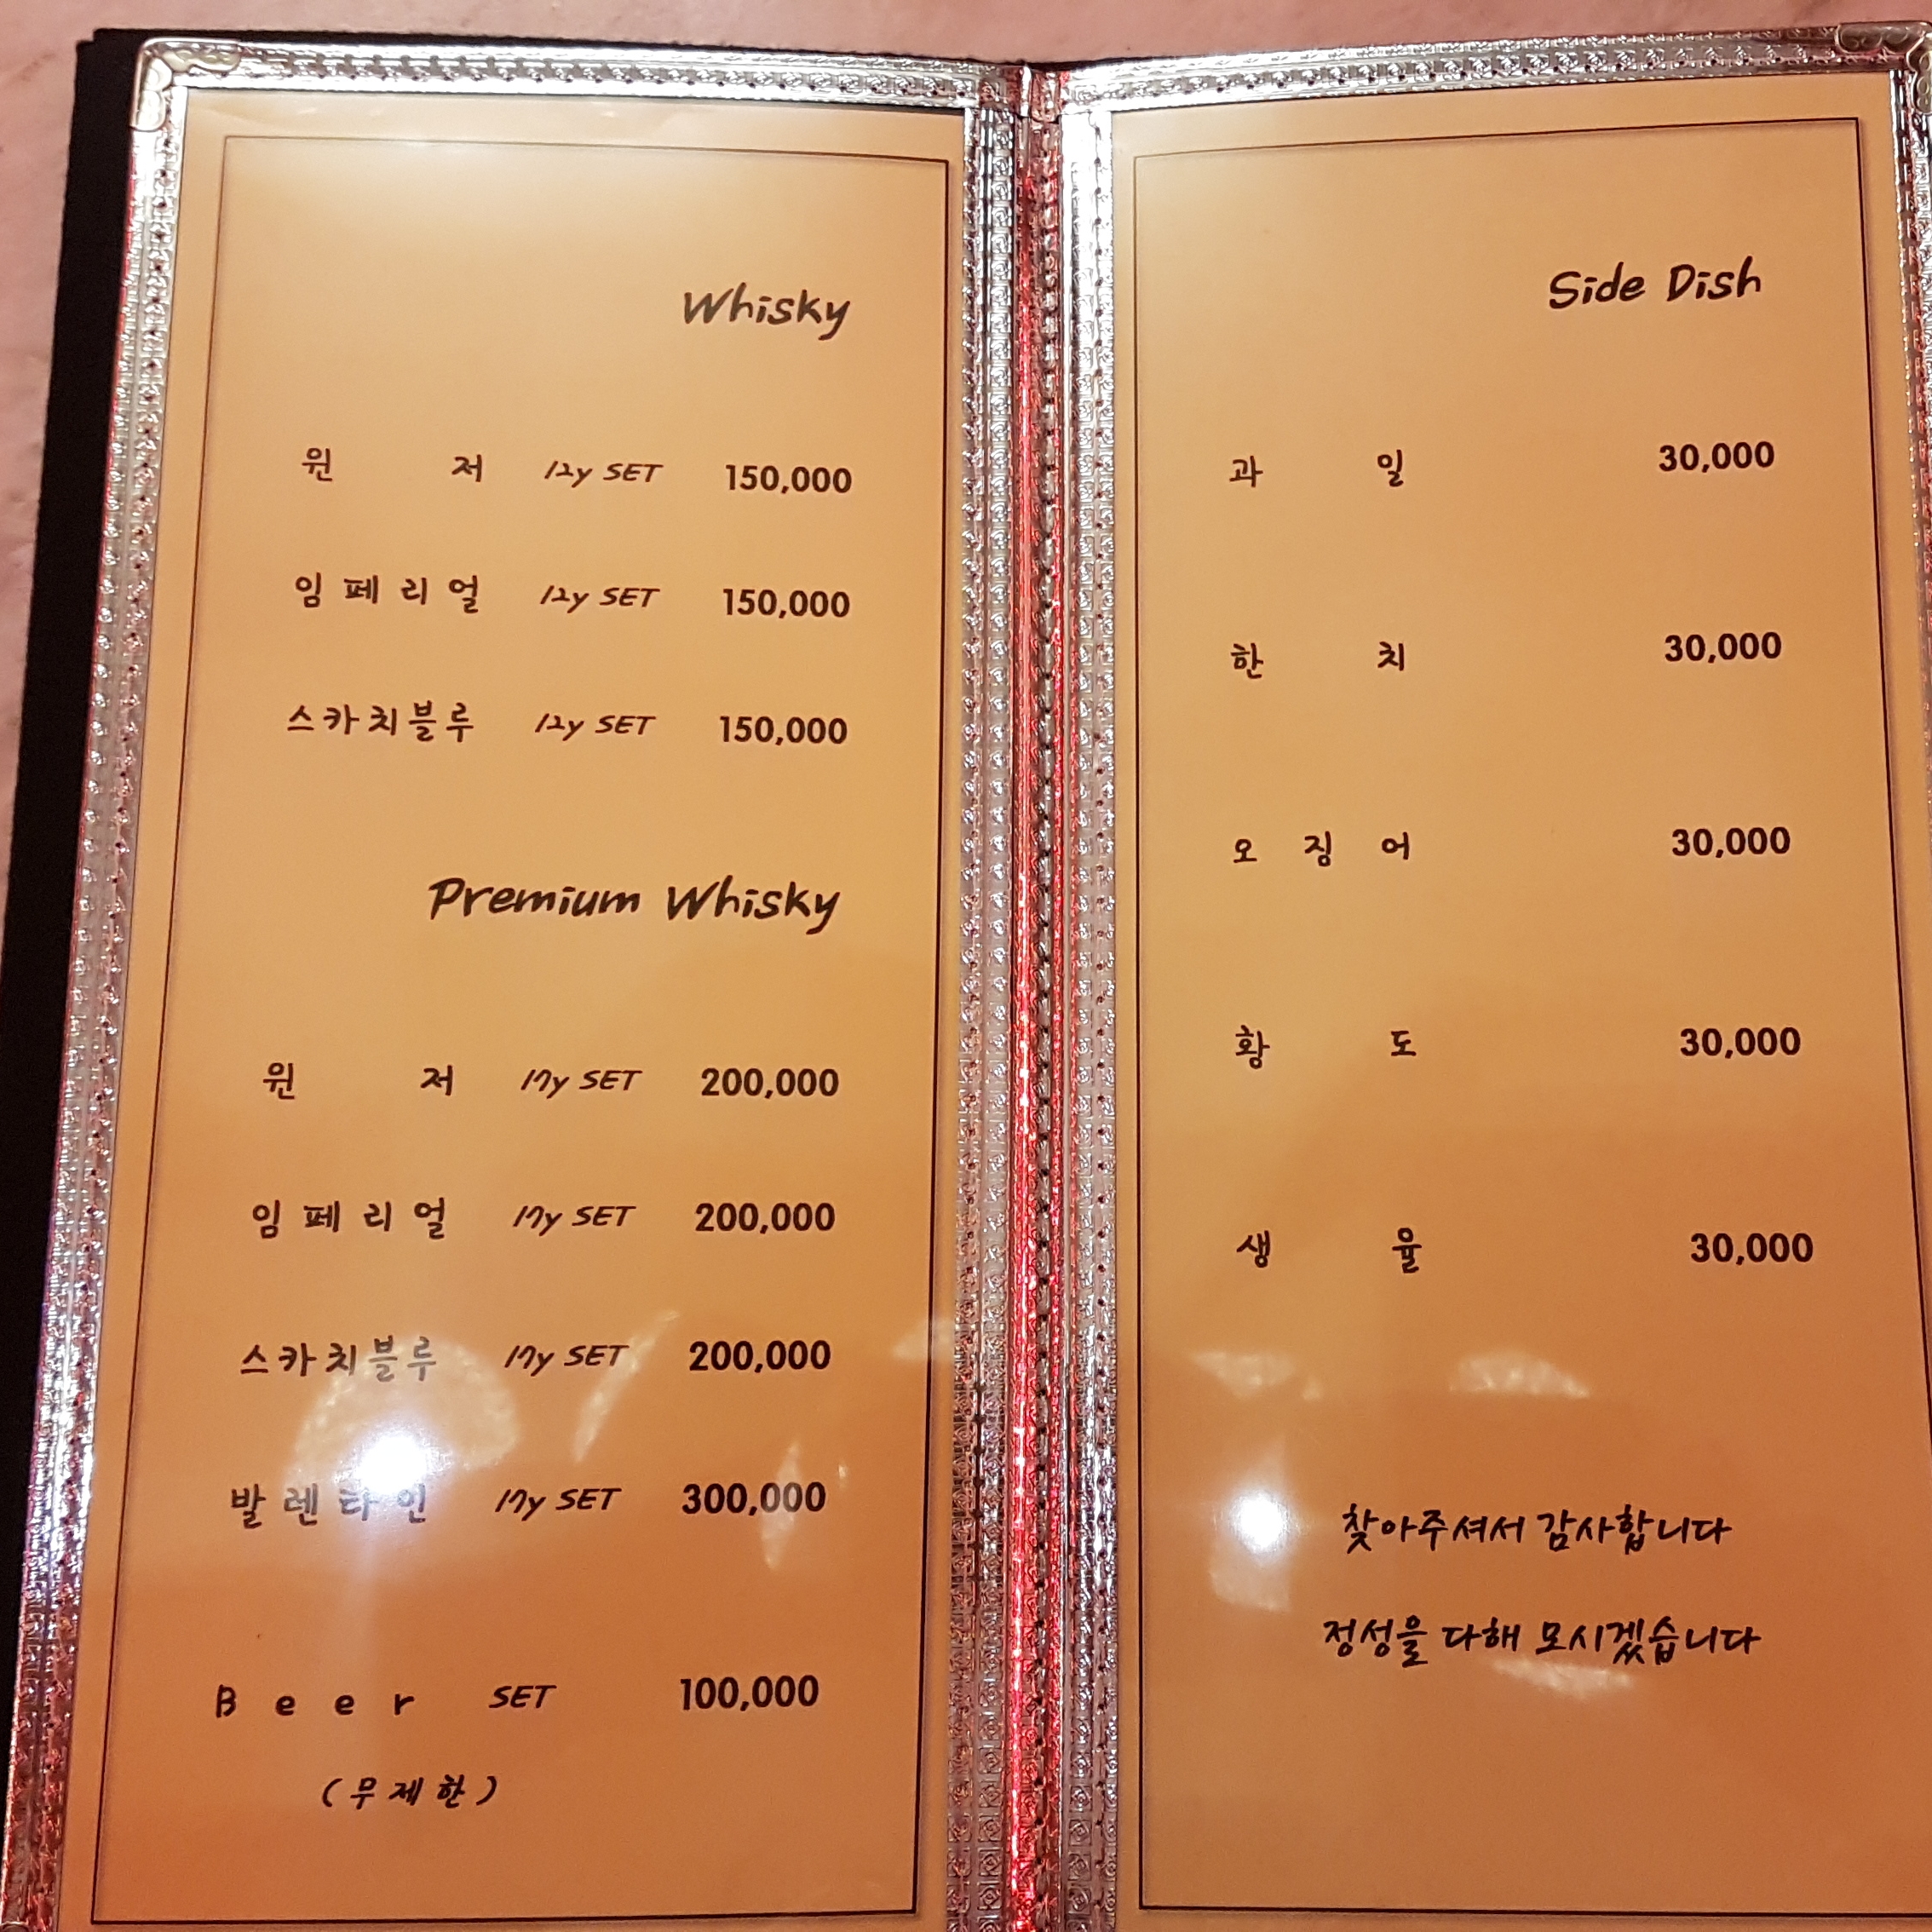 Whisky
윈 저 12y SET 150,000
임페리얼 12y SET 150,000
스카치블루 12y SET 150,000
Premium Whisky
윈 저 17y SET 200,000
임페리얼 17y SET 200,000
스카치블루 17y SET 200,000
발렌타인 17y SET 300,000
Beer SET 100,000
(무제한)
Side Dish
과 일 30,000
한 치 30,000
오 징 어 30,000
황 도 30,000
생 율 30,000
찾아주셔서 감사합니다
정성을 다해 모시겠습니다